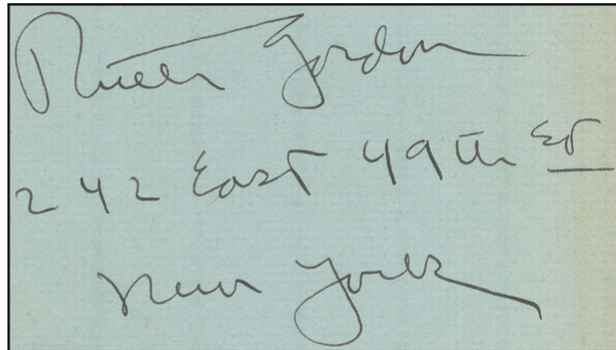 Ruth Gordon
242 East 49th St
New York